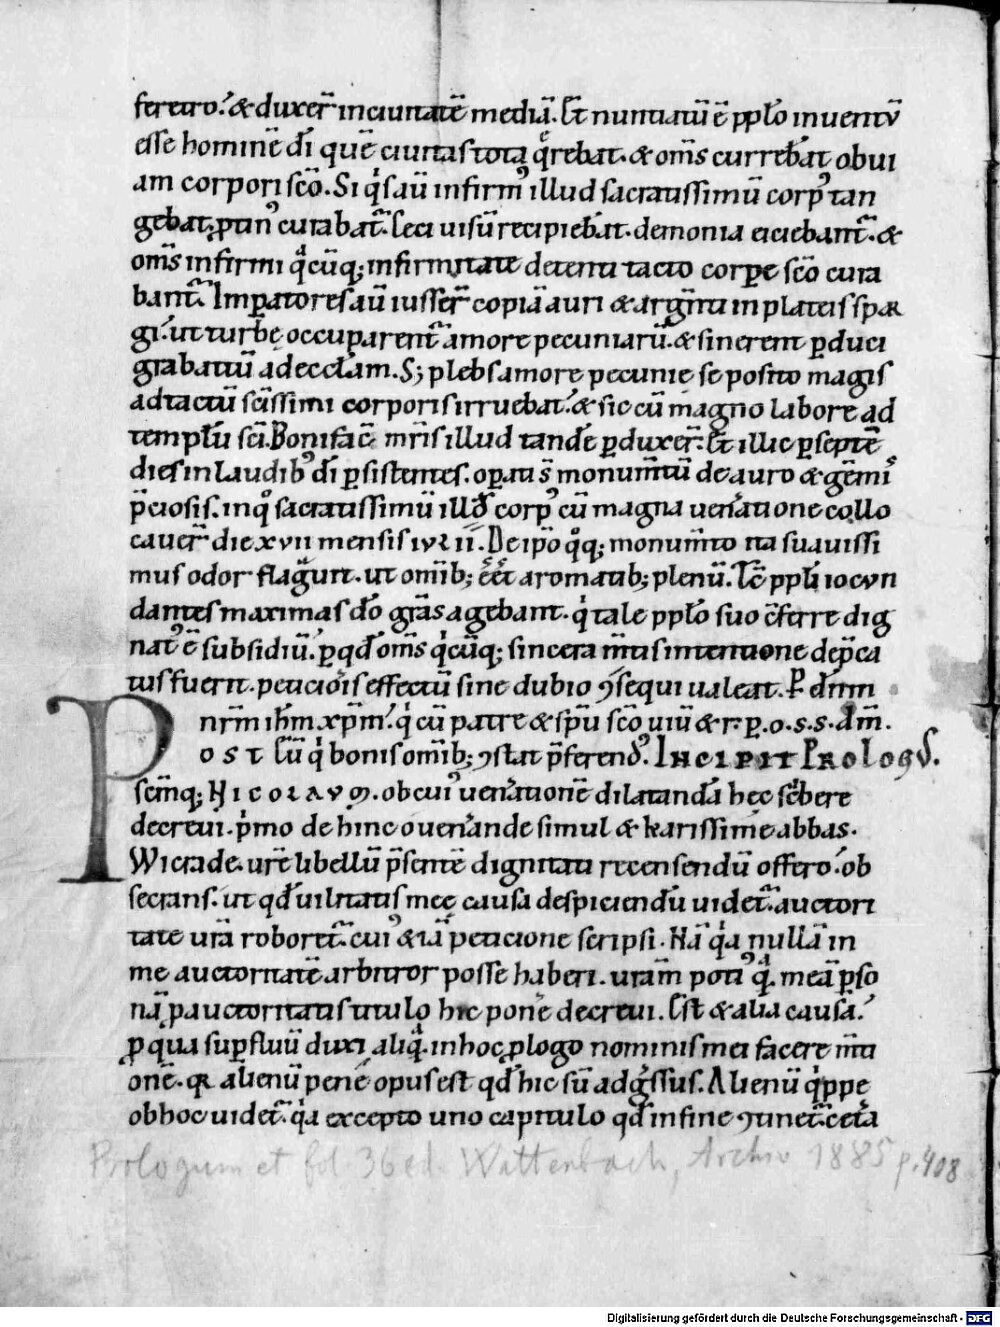 feretro. & duxer̄ in ciuitatē mediā. Et nuntiatū ē pplō inuentū
esse hominē dī quē ciuitas tota q̄rebat. & om̄s currebāt obui
am corpori scō. Si qͥs aū infirmꝰ illud sacratissimū corpꝰ tan
gebat. ꝓtinꝰ curabat᷑. Ceci uisū recipiebāt. demonia eiciebant᷑. &
om̄s infirmi qͣcūq; infirmitate detenti tacto corpe scō cura
bant᷑. Imp̲atores aū iusser̄ copiā auri & argn̄ti in plateis spar
gi. ut turbę occuparent᷑ amore pecuniarū. & sinerent p̲duci
grabattū ad eccl̄am. S; plebs amore pecunie se posito magis
ad tactū scīssimi corporis irruebat. & sic cū magno labore ad
templū scī Bonifacī mr̄is illud tandē p̲duxer̄. Et illic p̲ septē
dies in laudibꝰ dī p̲sistentes. op̲ati s̄ monum̄tū de auro & gēmis
p̄ciosis. in qͦ sacratissimū illđ corpꝰ cū magna uen̄atione collo
cauer̄ die xvii mensis iulii. De ipō qͦq; monum̄to ita suauissi
mus odor flagͣuit. ut omīb; eēt aromatib; plenū. Tc̄ ppl̄i iocun
dantes maximas dō grās agebant. qͥ tale pplō suo c̄ferre dig
natꝰ ē subsidiū. p̲ qd̄ om̄s qͥcūq; sincera m̄tis intentione dep̄ca
tus fuerit. peticiōis effectū sine dubio ꝯsequi ualeat. P dn̄m
nr̄m ih̄m xp̄m. qͥ cū patre & sp̄u scō uiū & r. p. o. s. s. am̄.
Post tū qͥ bonis omīb; ꝯstat p̄ferendꝰ. Incipit Prologꝰ.
sem̄q; Nicolaum. ob cuiꝰ uen̄ationē dilatandā hęc scͥbere
decreui. pͥmo dehinc o uen̄ande simul & karissime abbas.
Wicrade. ur̄e libellū p̄sentē dignitati recensendū offero. ob
secrans. ut qd̄ uilitatis meę causa despiciendū uidet᷑. auctori
tate urā roboret᷑. cuiꝰ & iā peticione scripsi. Nā qͥa nullā in
me auctoritatē arbitror posse haberi. uram̄ potiꝰ qͣ meā p̲so
nā ꝓ auctoritatis titulo hic ponē decreui. Est & alia causa.
ꝓ qua sup̲fluū duxi aliqͣ in hoc ꝓlogo nominis mei facere m̄ti
onē. qr alienū penē opus est qd̄ hic sū adgͣssus. Alienū qͥppe
ob hoc uidet᷑. qͥa excepto uno capitulo qd̄ in fine ꝯtinet᷑. cetͣa
Prologum et fol 36 ed. Wattenbach, Archiv 1885 p. 408
Digitalisierung gefördert durch die Deutsche Forschungsgemeinschaft - DFG